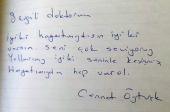 Sevgili doktorum
iyiki hayatımdasın iyiki
varsın. Seni çok seviyorum
Yollarımız iyiki seninle kesişmiş
Hayatımızda hep varol.
Cennet Öztürk